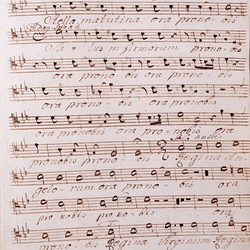 Stella matutina ora prono-
Salus infirmorum prono-bis
ora prono-bis ora prono-bis
ora prono-bis ora prono-bis
ora pronobis ora pro-nobis ora
pronobis prono-bis Regina An-
gelo-rum ora prono-bis ora
pro nobis pro no-bis ora
prono-bis Regina Virginum